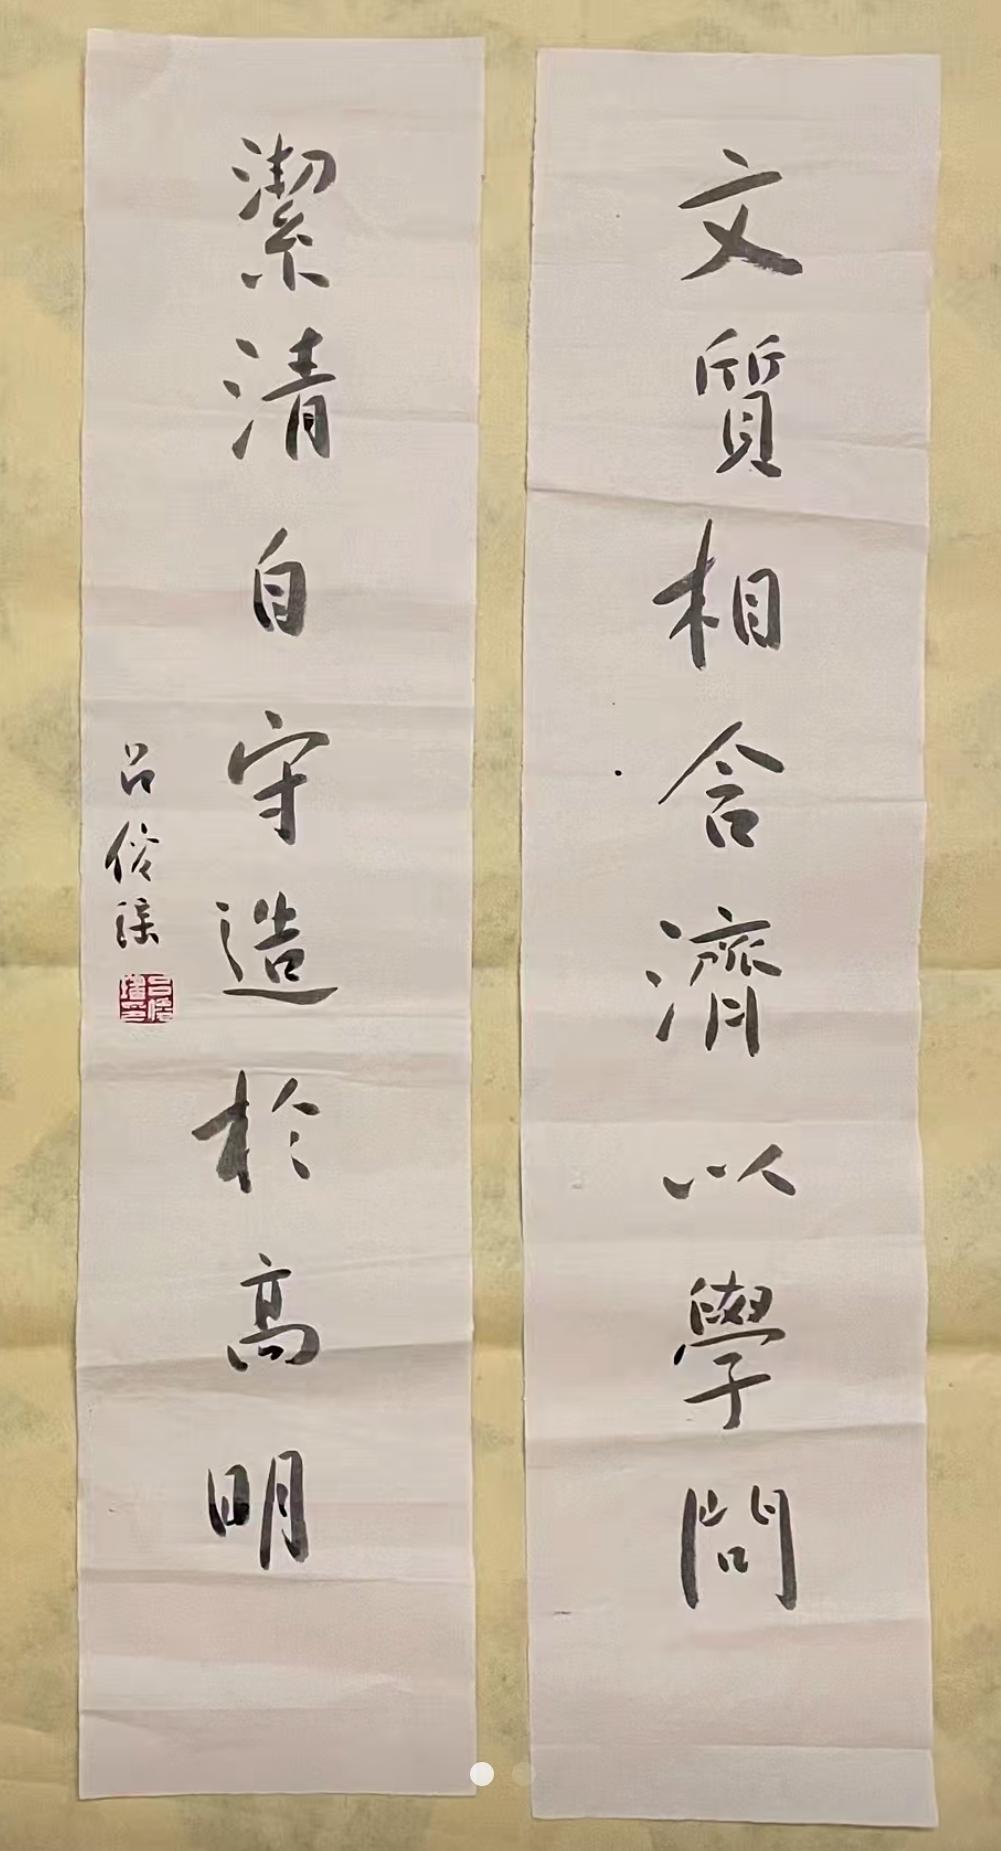 文質相含濟以學問
潔清自守造於高明
呂俊